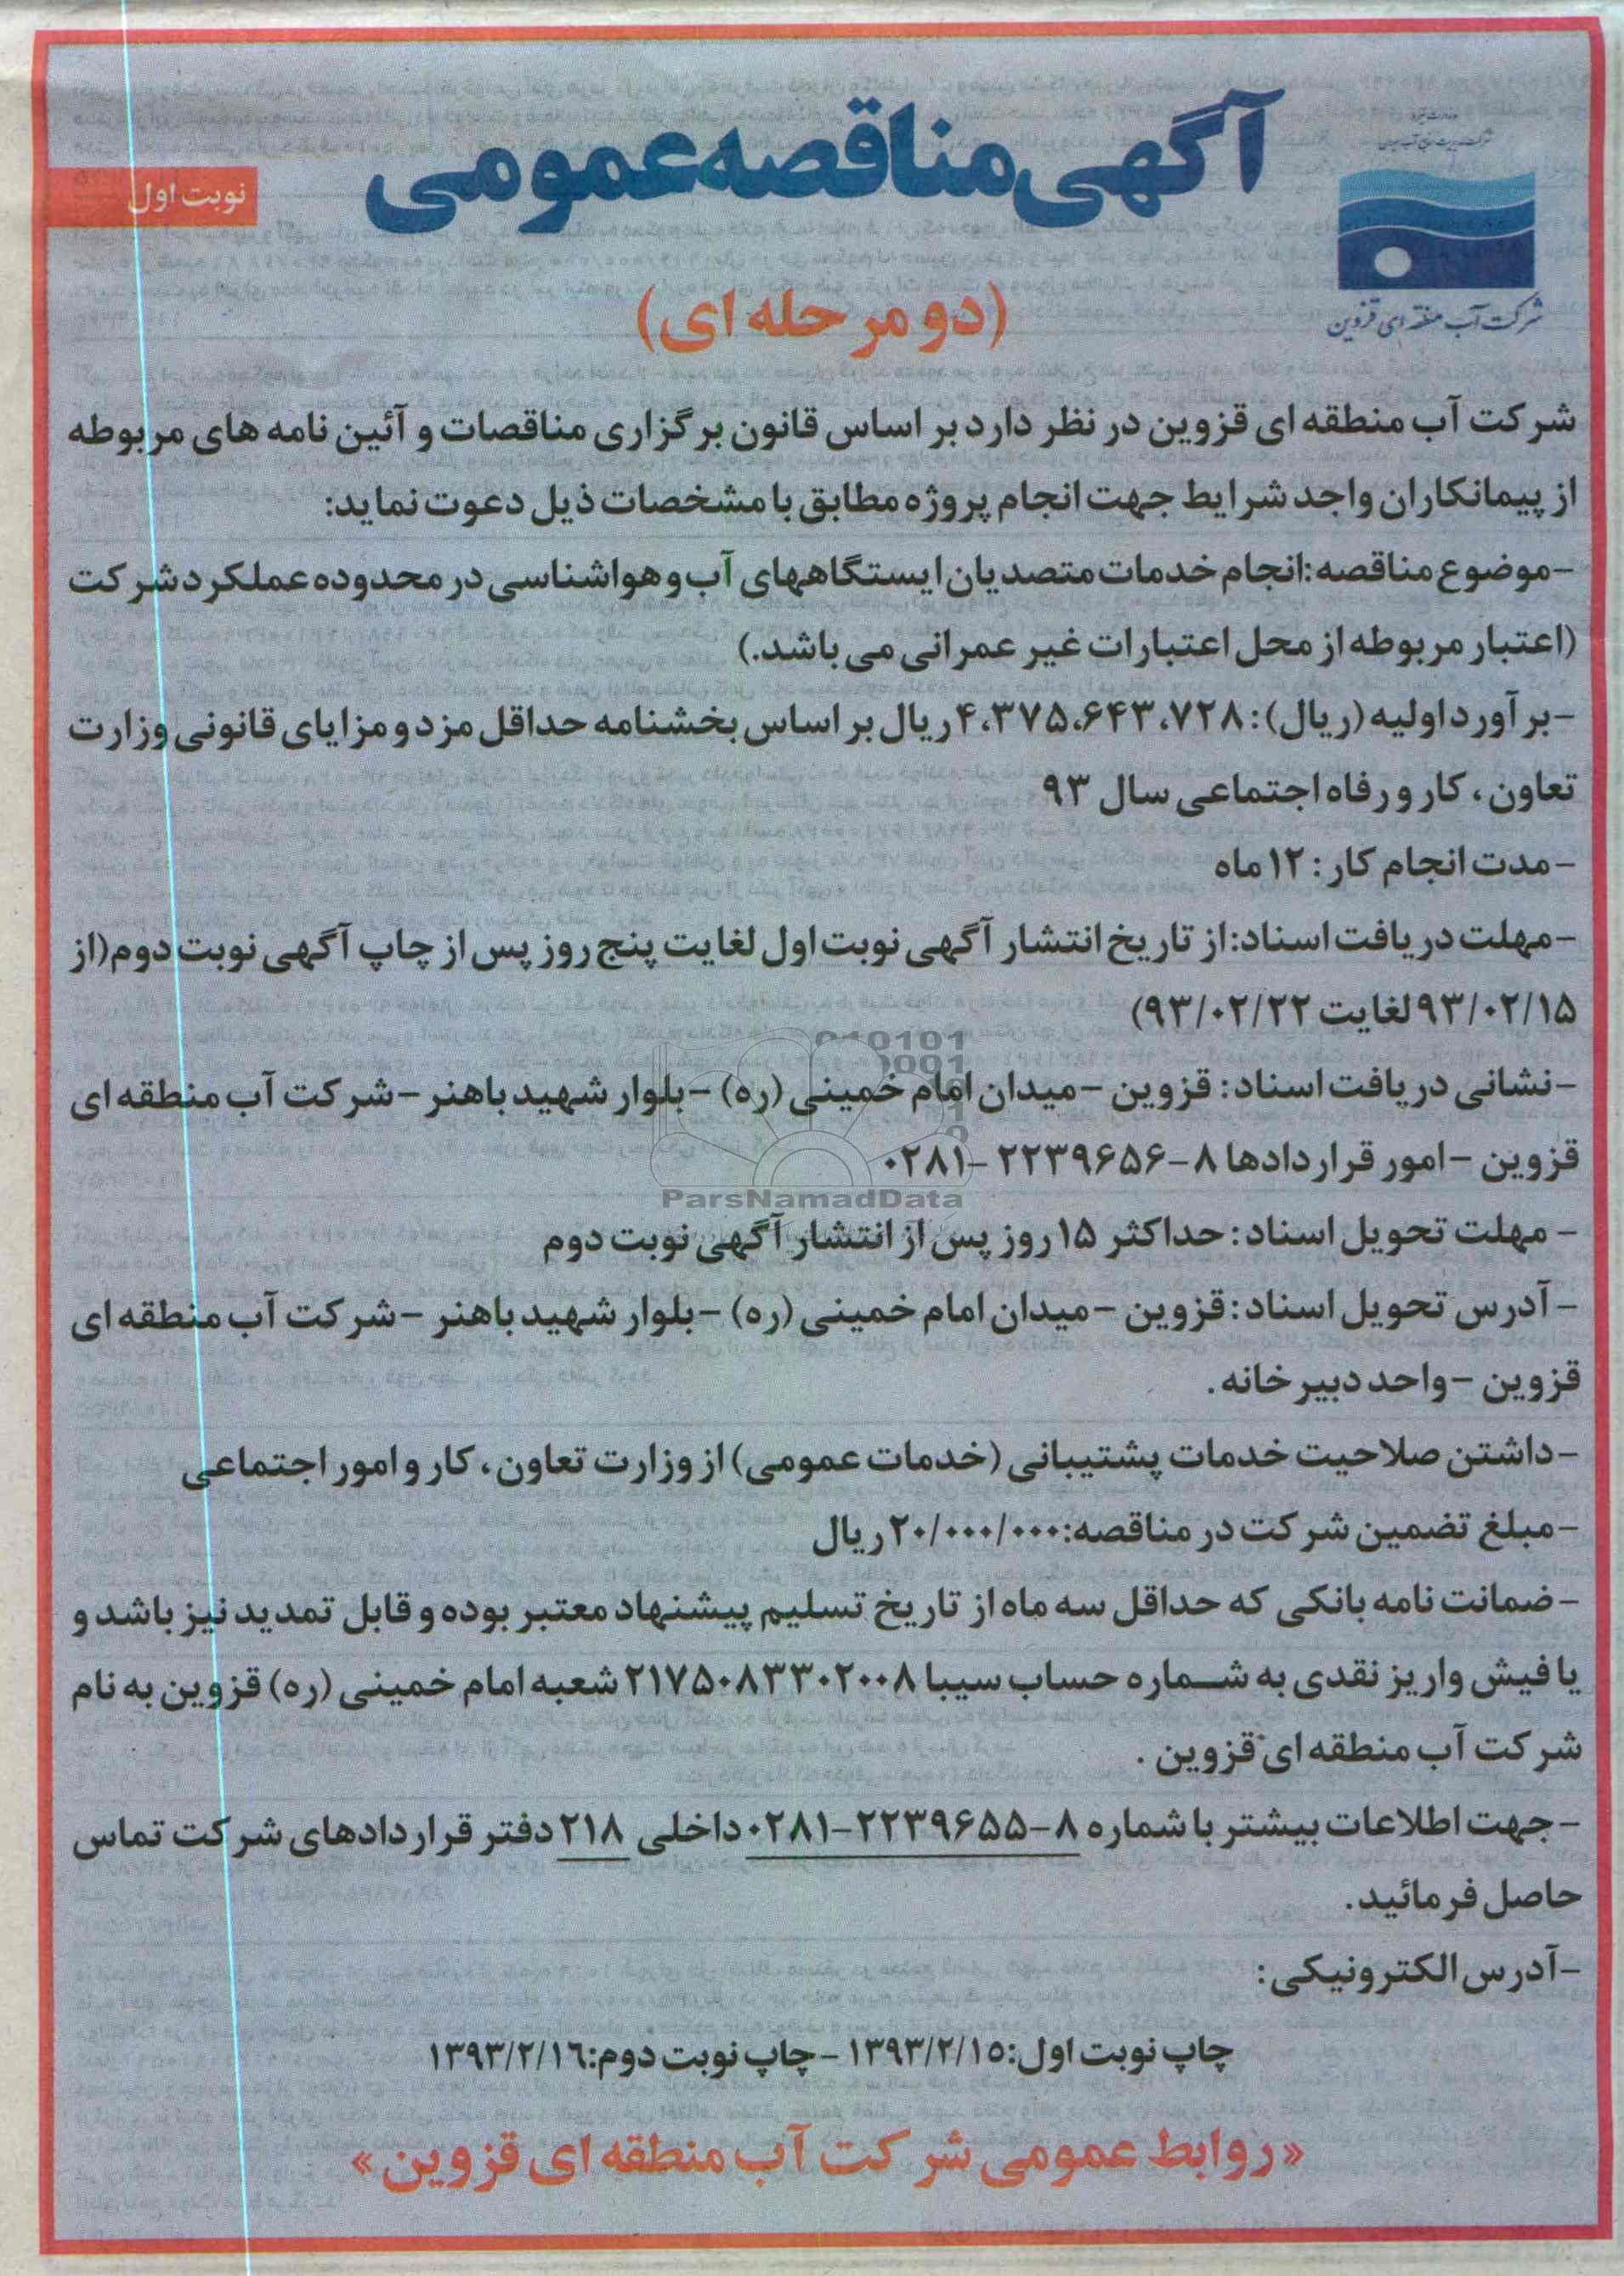 آگهی مناقصه عمومی
نوبت اول
(دو مرحله ای)
شرکت آب منطقه ای قزوین
شرکت آب منطقه ای قزوین در نظر دارد بر اساس قانون برگزاری مناقصات و آئین نامه های مربوطه
از پیمانکاران واجد شرایط جهت انجام پروژه مطابق با مشخصات ذیل دعوت نماید:
-موضوع مناقصه:انجام خدمات متصدیان ایستگاههای آب و هواشناسی در محدوده عملکرد شرکت
(اعتبار مربوطه از محل اعتبارات غیر عمرانی می باشد.)
-برآورد اولیه (ریال): ۴،۳۷۵،۶۴۳،۷۲۸ ریال بر اساس بخشنامه حداقل مزد و مزایای قانونی وزارت
تعاون، کار و رفاه اجتماعی سال ۹۳
-مدت انجام کار: ۱۲ ماه
-مهلت دریافت اسناد:از تاریخ انتشار آگهی نوبت اول لغایت پنج روز پس از چاپ آگهی نوبت دوم(از
۹۳/۰۲/۱۵ لغایت ۹۳/۰۲/۲۲)
-نشانی دریافت اسناد: قزوین -میدان امام خمینی (ره) -بلوار شهید باهنر -شرکت آب منطقه ای
قزوین -امور قراردادها ۸-۲۲۳۹۶۵۶ -۰۲۸۱
ParsNamadData
- مهلت تحویل اسناد: حداکثر ۱۵ روز پس از انتشار آگهی نوبت دوم
- آدرس تحویل اسناد: قزوین -میدان امام خمینی (ره) -بلوار شهید باهنر -شرکت آب منطقه ای
قزوین -واحد دبیرخانه.
-داشتن صلاحیت خدمات پشتیبانی (خدمات عمومی) از وزارت تعاون، کار و امور اجتماعی
-مبلغ تضمین شرکت در مناقصه:۲۰/۰۰۰/۰۰۰ ریال
-ضمانت نامه بانکی که حداقل سه ماه از تاریخ تسلیم پیشنهاد معتبر بوده و قابل تمدید نیز باشد و
یا فیش واریز نقدی به شماره حساب سیبا ۲۱۷۵۰۸۳۳۰۲۰۰۸ شعبه امام خمینی (ره) قزوین به نام
شرکت آب منطقه ای قزوین .
-جهت اطلاعات بیشتر با شماره ۸-۲۲۳۹۶۵۵-۰۲۸۱ داخلی ۲۱۸ دفتر قراردادهای شرکت تماس
حاصل فرمائید.
-آدرس الکترونیکی:
چاپ نوبت اول:۱۳۹۳/۲/۱۵ -چاپ نوبت دوم:۱۳۹۳/۲/۱۶
«روابط عمومی شرکت آب منطقه ای قزوین»